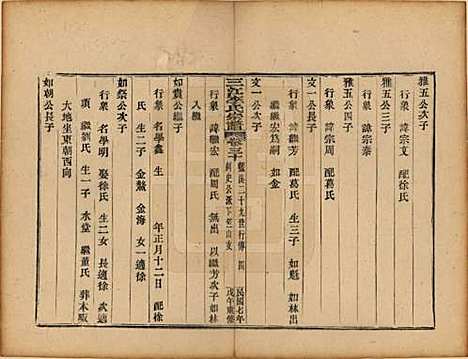 雅五公次子
行彙 諱宗文 配徐氏
雅五公三子
行彙 諱宗泰
雅五公四子
行彙 諱宗周
文一公長子
行彙 諱繼芳 配葛氏 生三子 如魁 如林
如金
文一公次子
繼宏為嗣
行彙 諱繼宏 配周氏 無出 以繼芳次子如林
入繼
三江李氏宗譜 卷三十 藍田二十九世行傳 四 民國七年 戊午重修
如貴公繼子
行彙 名學鑫 生 年正月十二日 配徐
氏 生二子 金鰲 金海 女一適徐
如祭公次子
行彙 名學明 娶徐氏 生二女 長適徐 次適
項 繼劉氏 生一子 水堂 繼董氏 葬木畈
大地坐東朝西向
如朝公長子